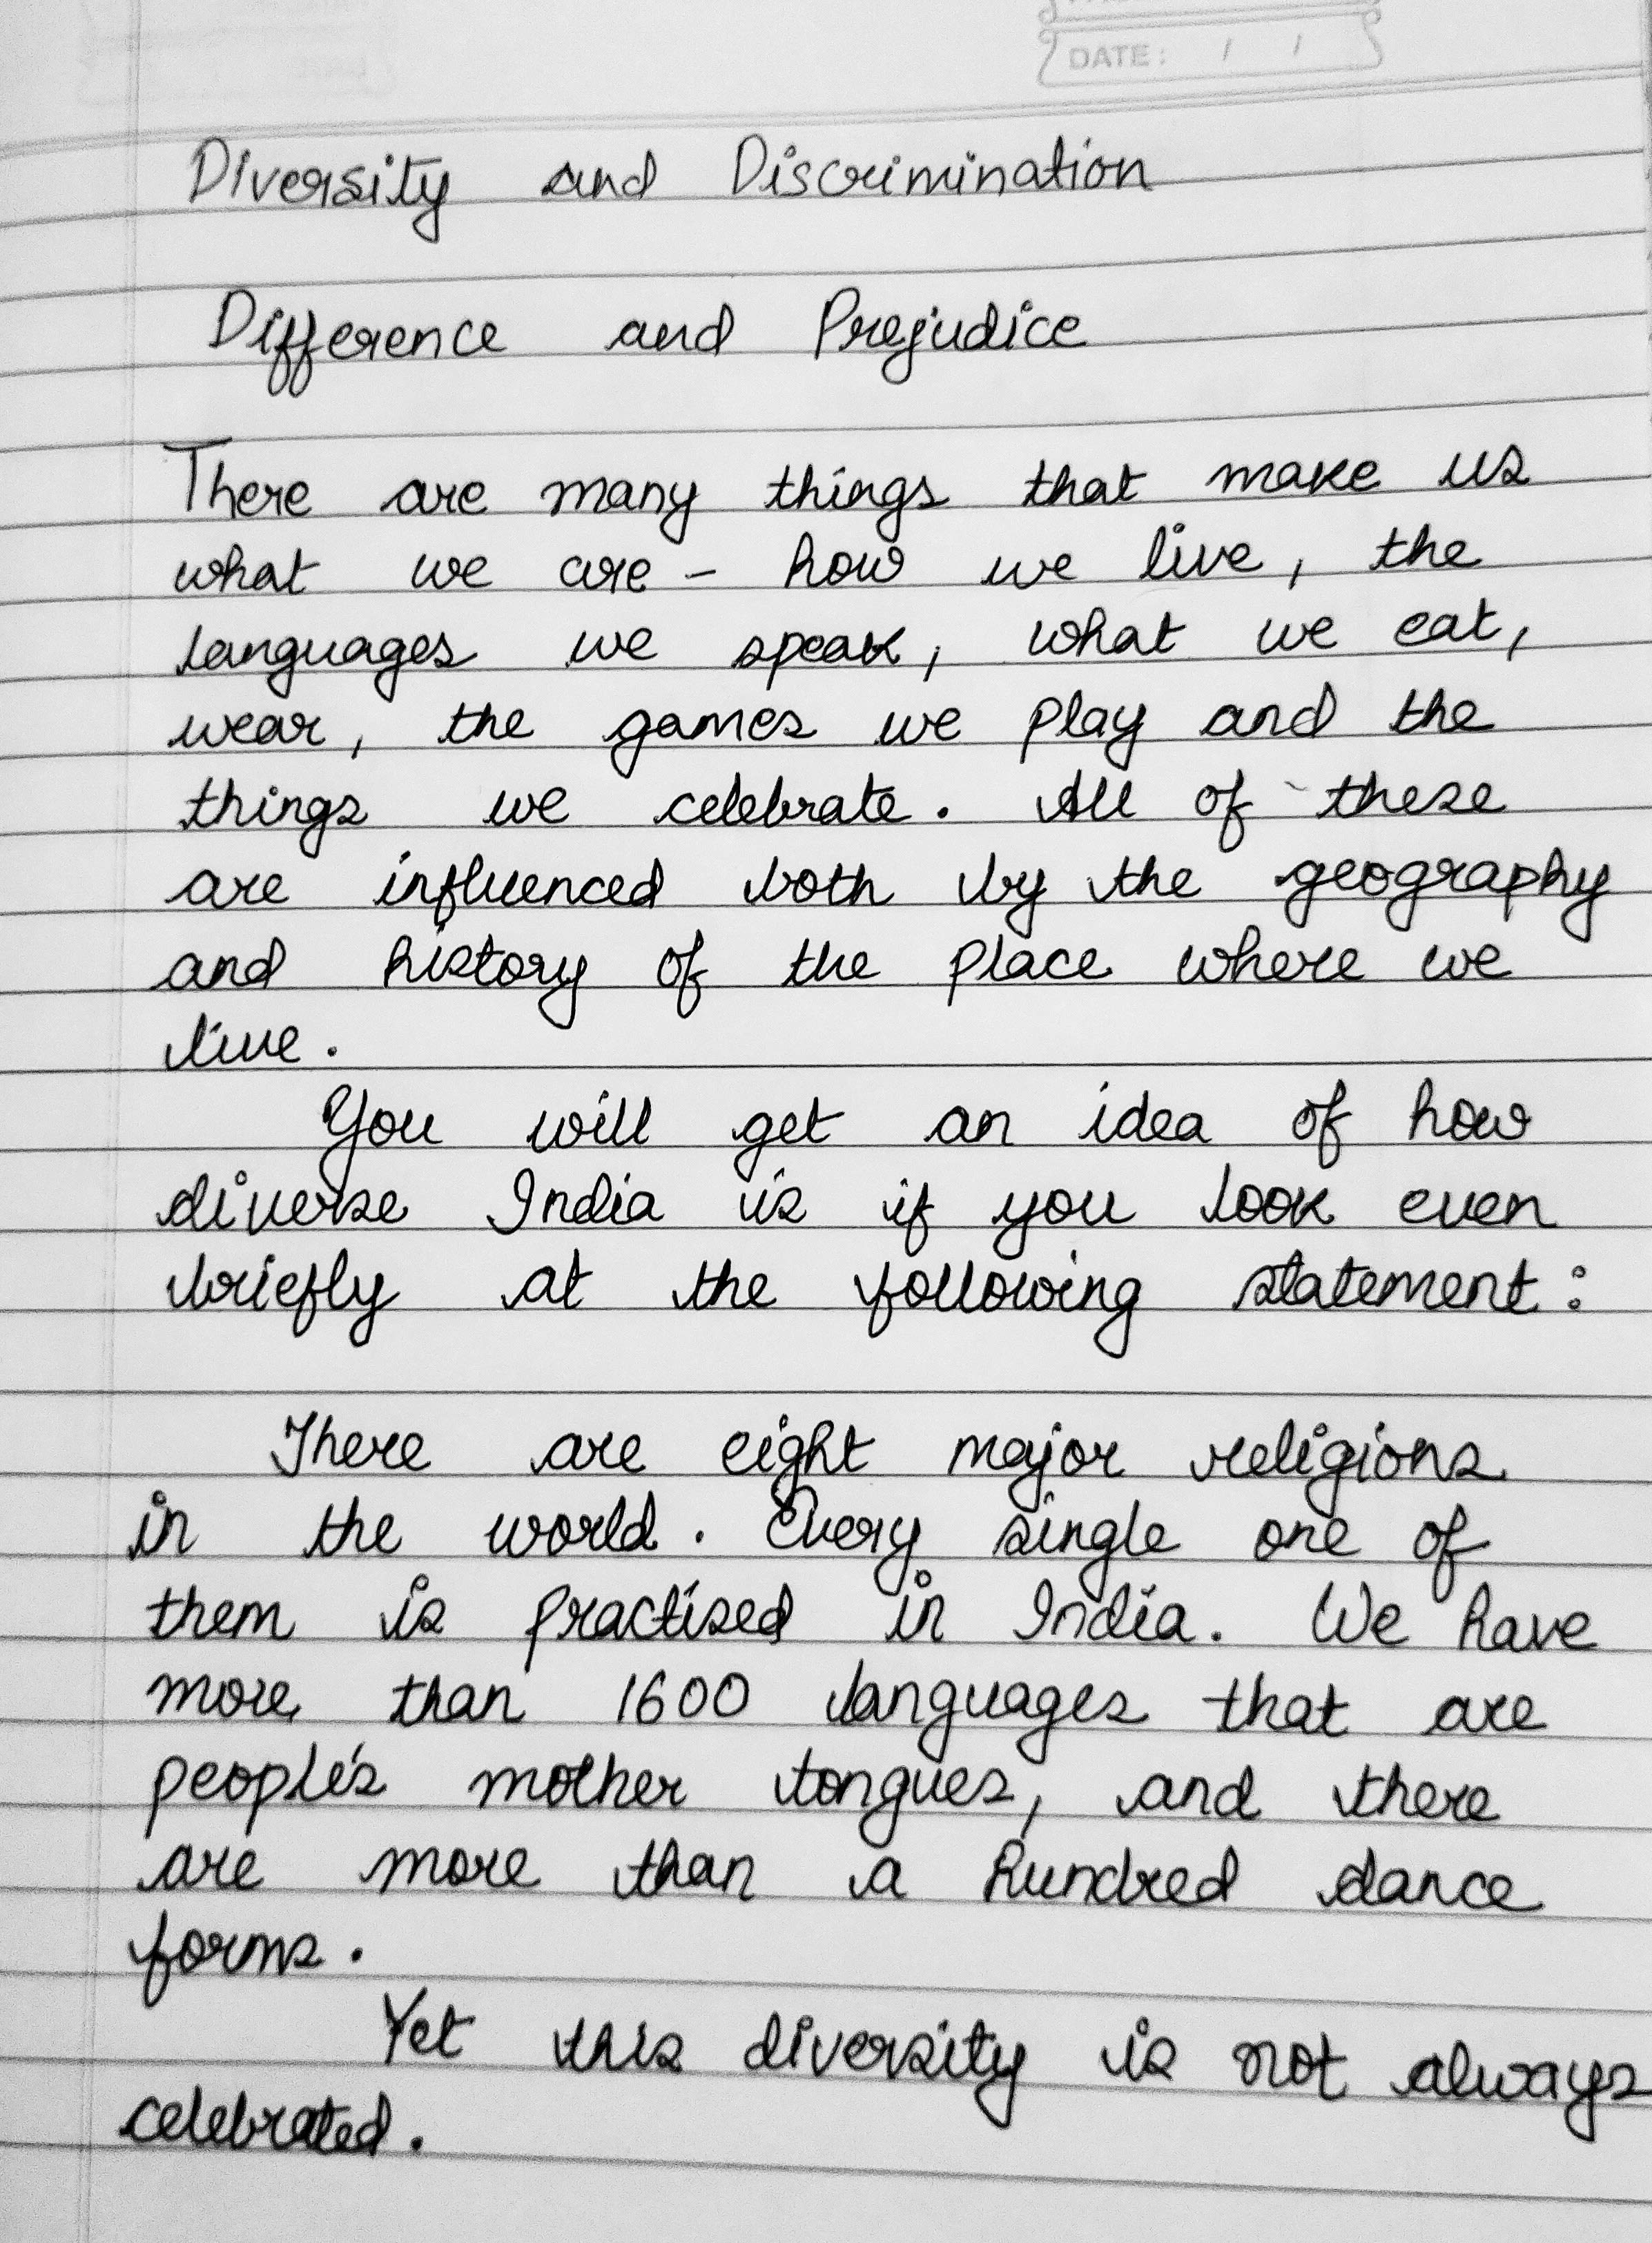 DATE: / /
Diversity and Discrimination
Difference and Prejudice
There are many things that make us
what we are – how we live, the
languages we speak, what we eat,
wear, the games we play and the
things we celebrate. All of these
are influenced both by the geography
and history of the place where we
live.
You will get an idea of how
diverse India is if you look even
briefly at the following statement:
There are eight major religions
in the world. Every single one of
them is practised in India. We have
more than 1600 languages that are
people's mother tongues, and there
are more than a hundred dance
forms.
Yet this diversity is not always
celebrated.